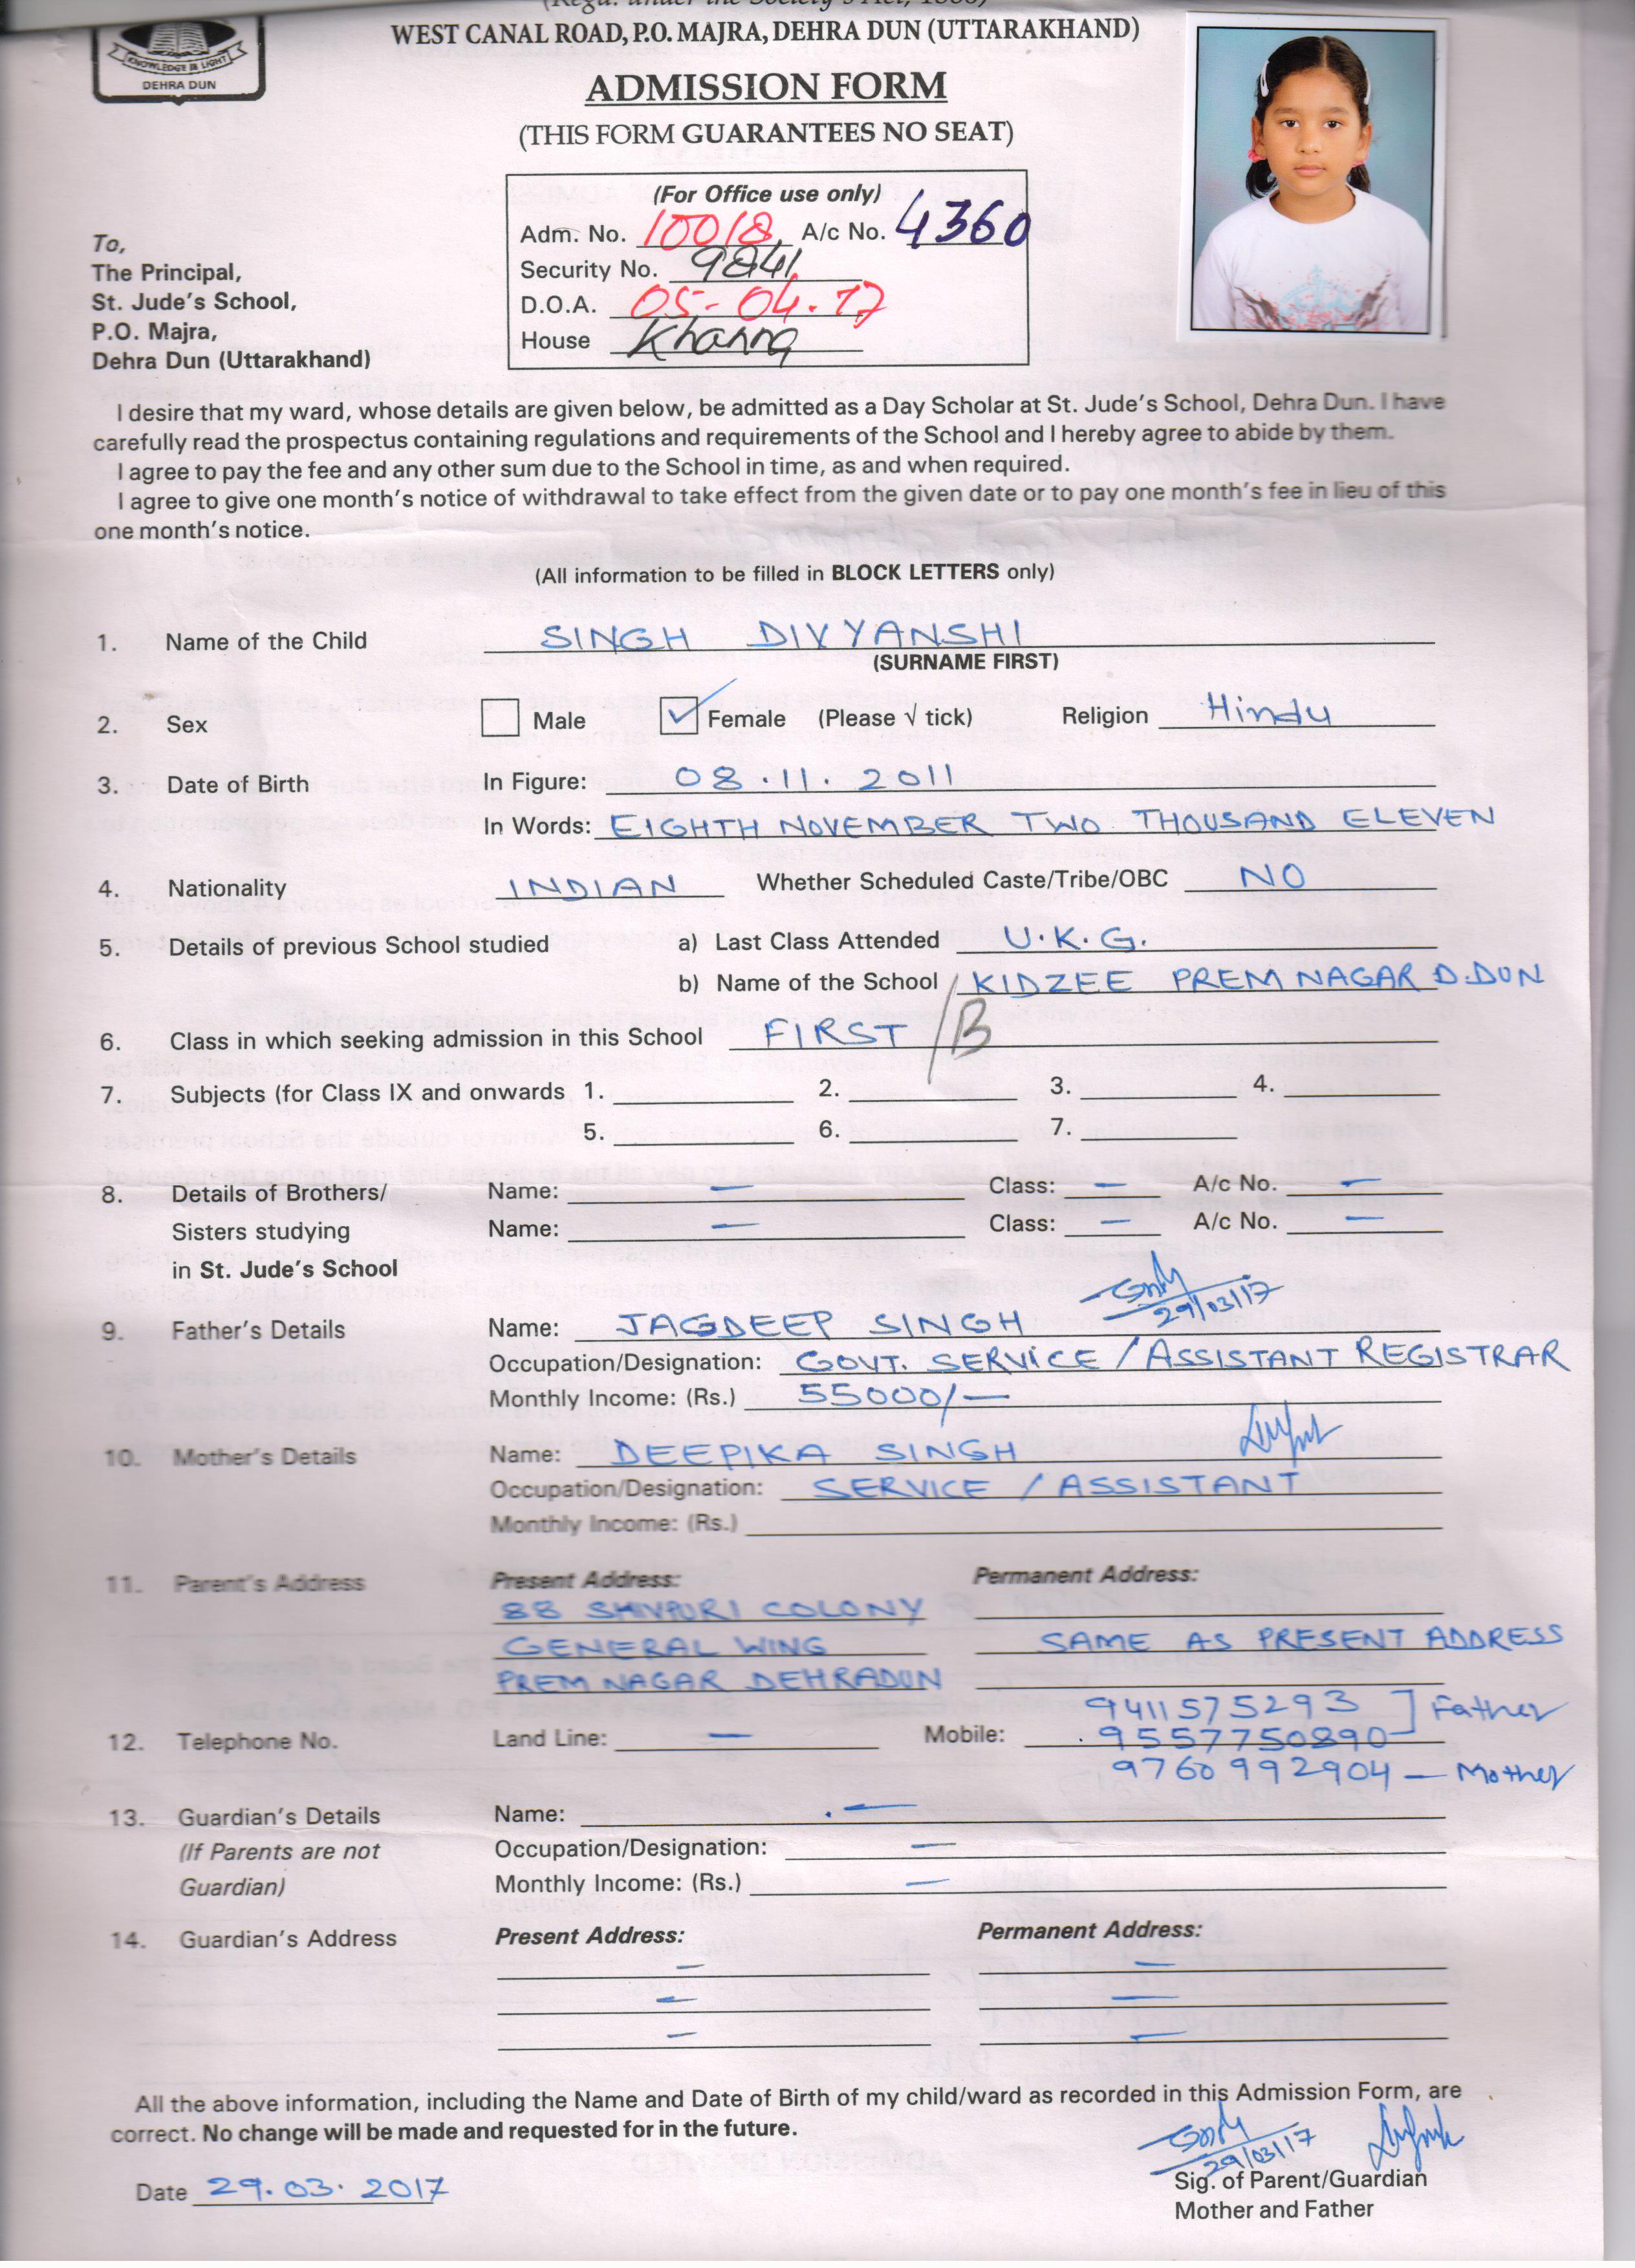 (Regd. under the Society's Act, 1860)
WEST CANAL ROAD, P.O. MAJRA, DEHRA DUN (UTTARAKHAND)
KNOWLEDGE IS LIGHT
DEHRA DUN
ADMISSION FORM
(THIS FORM GUARANTEES NO SEAT)
(For Office use only)
Adm. No. 10018 A/c No. 4360
Security No. 9841
D.O.A. 05-04-17
House Khanna
To,
The Principal,
St. Jude's School,
P.O. Majra,
Dehra Dun (Uttarakhand)
I desire that my ward, whose details are given below, be admitted as a Day Scholar at St. Jude's School, Dehra Dun. I have
carefully read the prospectus containing regulations and requirements of the School and I hereby agree to abide by them.
I agree to pay the fee and any other sum due to the School in time, as and when required.
I agree to give one month's notice of withdrawal to take effect from the given date or to pay one month's fee in lieu of this
one month's notice.
(All information to be filled in BLOCK LETTERS only)
1. Name of the Child SINGH DIVYANSHI
(SURNAME FIRST)
2. Sex Male ✓ Female (Please √ tick) Religion Hindu
3. Date of Birth In Figure: 08.11.2011
In Words: EIGHTH NOVEMBER TWO THOUSAND ELEVEN
4. Nationality INDIAN Whether Scheduled Caste/Tribe/OBC NO
5. Details of previous School studied a) Last Class Attended U.K.G.
b) Name of the School KIDZEE PREM NAGAR D.DUN
6. Class in which seeking admission in this School FIRST /B
7. Subjects (for Class IX and onwards 1. 2. 3. 4.
5. 6. 7.
8. Details of Brothers/ Name: — Class: — A/c No. —
Sisters studying Name: — Class: — A/c No. —
in St. Jude's School
29/03/17
9. Father's Details Name: JAGDEEP SINGH
Occupation/Designation: GOVT. SERVICE / ASSISTANT REGISTRAR
Monthly Income: (Rs.) 55000/—
10. Mother's Details Name: DEEPIKA SINGH
Occupation/Designation: SERVICE / ASSISTANT
Monthly Income: (Rs.)
11. Parent's Address Present Address: Permanent Address:
88 SHIVPURI COLONY
GENERAL WING SAME AS PRESENT ADDRESS
PREM NAGAR DEHRADUN
9411575293 ] Father
12. Telephone No. Land Line: — Mobile: 9557750890
9760992904 — Mother
13. Guardian's Details Name: —
(If Parents are not Occupation/Designation: —
Guardian) Monthly Income: (Rs.) —
14. Guardian's Address Present Address: Permanent Address:
— —
— —
— —
All the above information, including the Name and Date of Birth of my child/ward as recorded in this Admission Form, are
correct. No change will be made and requested for in the future.
29/03/17
Date 29.03.2017 Sig. of Parent/Guardian
Mother and Father